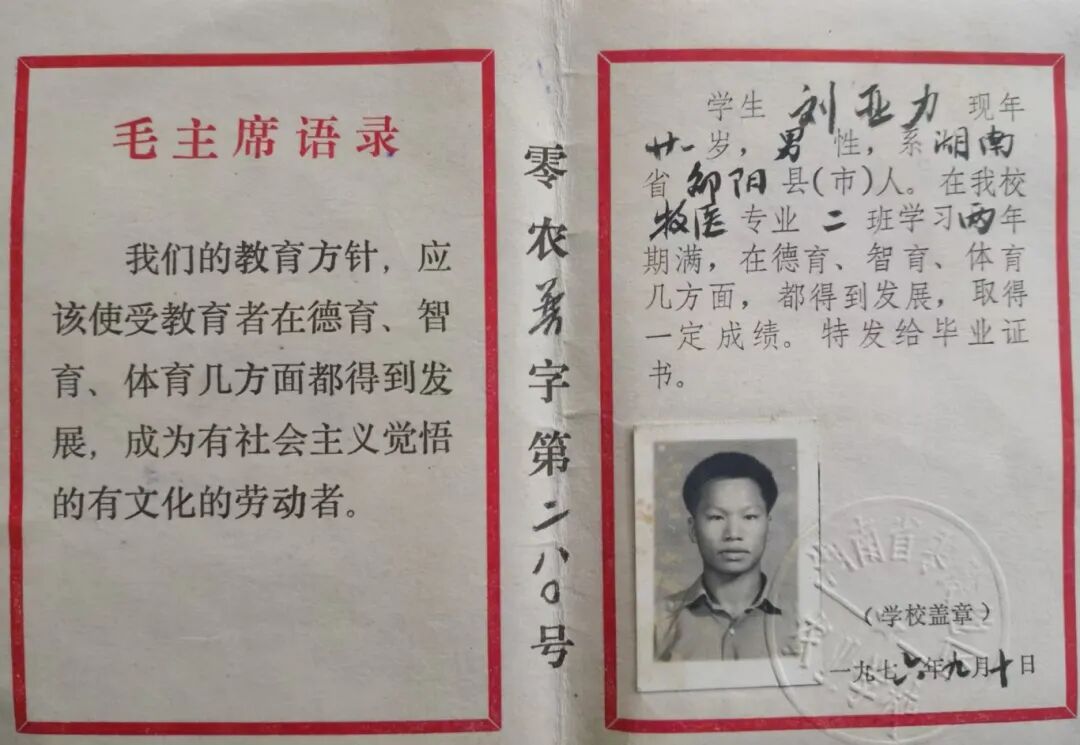 毛主席语录
我们的教育方针，应
该使受教育者在德育、智
育、体育几方面都得到发
展，成为有社会主义觉悟
的有文化的劳动者。
零农 字第二八〇号
学生 刘亚力 现年
廿一岁，男性，系湖南
省邵阳县(市)人。在我校
牧医专业二班学习两年
期满，在德育、智育、体育
几方面，都得到发展，取得
一定成绩。特发给毕业证
书。
湖南省
(学校盖章)
一九七六年九月十日